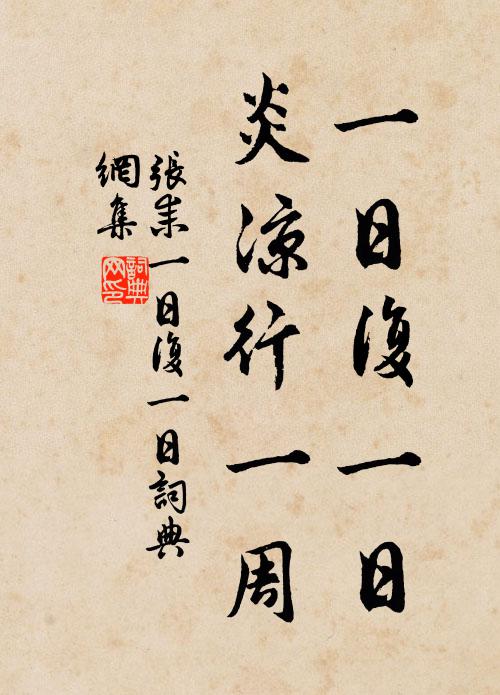 一日復一日
炎涼行一周
張耒一日復一日詞典
網集
詞典
網印